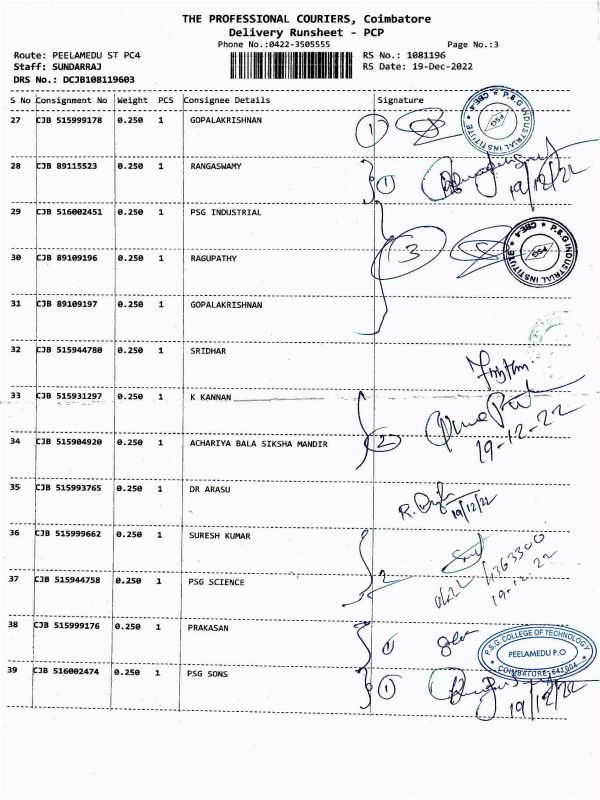 THE PROFESSIONAL COURIERS, Coimbatore
Delivery Runsheet - PCP
Phone No.:0422-3505555 Page No.:3
Route: PEELAMEDU ST PC4 RS No.: 1081196
Staff: SUNDARRAJ RS Date: 19-Dec-2022
DRS No.: DCJB108119603
S No Consignment No Weight PCS Consignee Details Signature
27 CJB 515999178 0.250 1 GOPALAKRISHNAN 1
P.S.G INDUSTRIAL INSTITUTE CBE-4 PSG
28 CJB 89115523 0.250 1 RANGASWAMY 1 19/12/22
29 CJB 516002451 0.250 1 PSG INDUSTRIAL 3
P.S.G INDUSTRIAL INSTITUTE CBE-4 PSG
30 CJB 89109196 0.250 1 RAGUPATHY
31 CJB 89109197 0.250 1 GOPALAKRISHNAN
32 CJB 515944780 0.250 1 SRIDHAR
33 CJB 515931297 0.250 1 K KANNAN
34 CJB 515904920 0.250 1 ACHARIYA BALA SIKSHA MANDIR 2 19-12-22
35 CJB 515993765 0.250 1 DR ARASU 19/12/22
36 CJB 515999662 0.250 1 SURESH KUMAR
37 CJB 515944758 0.250 1 PSG SCIENCE 2 19-12-22
38 CJB 515999176 0.250 1 PRAKASAN 1
P.S.G. COLLEGE OF TECHNOLOGY
PEELAMEDU P.O
COIMBATORE-641004
39 CJB 516002474 0.250 1 PSG SONS 1 19/12/22